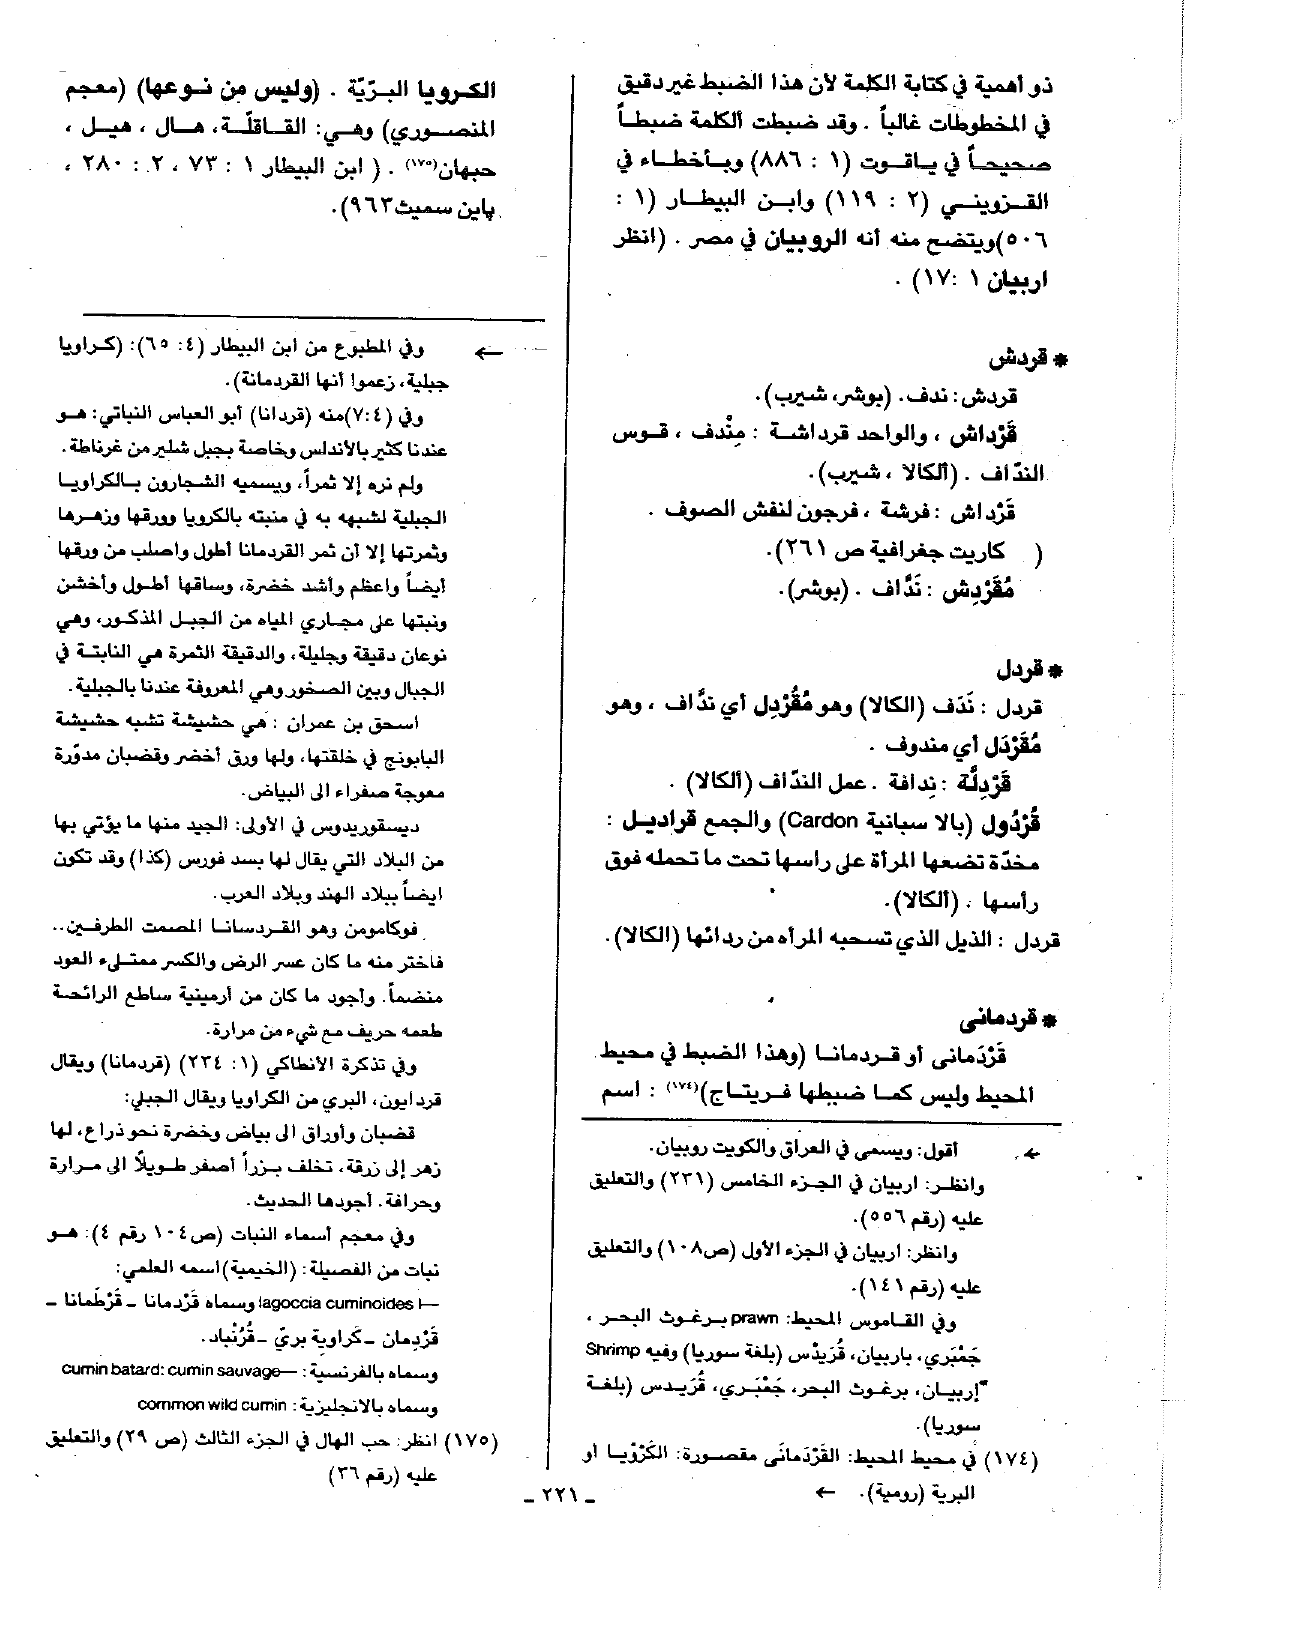 ذو أهمية في كتابة الكلمة لأن هذا الضبط غير دقيق
في المخطوطات غالباً . وقد ضبطت ألكلمة ضبطـاً
صحيحـاً في يـاقوت (١ : ٨٨٦) وبـأخطـاء في
القـزوينـي (٢ : ١١٩) وابـن البيطـار (١ :
٥٠٦)ويتضح منه أنه الروبيان في مصر . (انظر
اربيان ١ :١٧) .
* قردش
قردش: ندف. (بوشر، شيرب).
قَرْداش ، والواحد قرداشـة : مِنْدف ، قـوس
الندّاف . (ألكالا ، شيرب).
قَرْداش : فرشة ، فرجون لنفش الصوف .
( كاريت جغرافية ص ٢٦١).
مُقَرْدِش : نَدَّاف . (بوشر).
* قردل
قردل : نَدَف (الكالا) وهو مُقُرْدِل أي ندَّاف ، وهو
مُقَرْدَل أي مندوف .
قَرْدِلَّة : نِدافة . عمل الندّاف (ألكالا) .
قُرْدُول (بالا سبانية Cardon) والجمع قراديـل :
مخدّة تضعها المرأة على راسها تحت ما تحمله فوق
رأسها . (ألكالا).
قردل : الذيل الذي تسحبه المرأه من ردائها (الكالا).
* قردمانى
قَرْدَمانى أو قـردمانـا (وهذا الضبط في محيط
المحيط وليس كمـا ضبطها فـريتـاج)(١٧٤) : اسم
← أقول: ويسمى في العراق والكويت روبيان.
وانظـر: اربيان في الجـزء الخامس (٢٣١) والتعليق
عليه (رقم ٥٥٦).
وانظر: اربيان في الجزء الأول (ص١٠٨) والتعليق
عليه (رقم ١٤١).
وفي القـاموس المحيط: prawn بـرغوث البحـر ،
جَمْبَري، باربيان، قُرَيْدْس (بلغة سوريا) وفيه Shrimp
إربيـان، برغوث البحر، جَمْبَـري، قُرَيـدس (بلغـة
سوريا).
(١٧٤) في محيط المحيط: القَرْدَمانَى مقصـورة: الكَرَوْيـا أو
البرية (رومية). ←
الكـرويا البـرّيّة . (وليس من نـوعها) (معجم
المنصـوري) وهـي: القـاقلّـة، هـال ، هيـل ،
حبهان(١٧٥) . ( ابن البيطار ١ : ٧٣ ، ٢ : ٢٨٠ ،
پاين سميث٩٦٣).
← وفي المطبوع من ابن البيطار (٤: ٦٥): (كـراويا
جبلية، زعموا أنها القردمانة).
وفي (٧:٤)منه (قردانا) أبو العباس النباتي: هـو
عندنا كثير بالأندلس وخاصة بجبل شلير من غرناطة.
ولم نره إلا ثمراً، ويسميه الشجارون بـالكراويـا
الجبلية لشبهه به في منبته بالكرويا وورقها وزهـرها
وثمرتها إلا أن ثمر القردمانا أطول واصلب من ورقها
أيضـاً واعظم وأشد خضرة، وساقها أطول وأخشن
ونبتها على مجاري المياه من الجبل المذكور، وهي
نوعان دقيقة وجليلة، والدقيقة الثمرة هي النابتـة في
الجبال وبين الصخور وهي المعروفة عندنا بالجبلية.
اسحق بن عمران : هي حشيشة تشبه حشيشة
البابونج في خلقتها، ولها ورق أخضر وقضبان مدوّرة
معوجة صفراء الى البياض.
ديسقوريدوس في الأولى: الجيد منها ما يؤتي بها
من البلاد التي يقال لها بسد فورس (كذا) وقد تكون
ايضـاً ببلاد الهند وبلاد العرب.
فوكامومن وهو القـردسانـا المصمت الطرفيـن..
فاختر منه ما كان عسر الرض والكسر ممتلىء العود
منضمـاً. وأجود ما كان من أرمينية ساطع الرائحـة
طعمه حريف مع شيء من مرارة.
وفي تذكرة الأنطاكي (١: ٢٣٤) (قردمانا) ويقال
قردايون، البري من الكراويا ويقال الجبلي:
قضبان وأوراق الى بياض وخضرة نحو ذراع، لها
زهر إلى زرقة، تخلف بـزراً أصفر طـويلاً الى مـرارة
وحرافة. أجودها الحديث.
وفي معجم أسماء النبات (ص ١٠٤ رقم ٤): هـو
نبات من الفصيلة: (الخيمية)اسمه العلمي:
—lagoccia cuminoides l وسماه قَرْدمانا ـ قَرْطَمانا ـ
قَرْدِمان ـ كَراوية بريّ ـ قُرُنْباد.
وسماه بالفرنسية: —cumin batard: cumin sauvage
وسماه بالانجليزية: common wild cumin
(١٧٥) انظر: حب الهال في الجزء الثالث (ص ٢٩) والتعليق
عليه (رقم ٣٦)
ـ ٢٢١ ـ